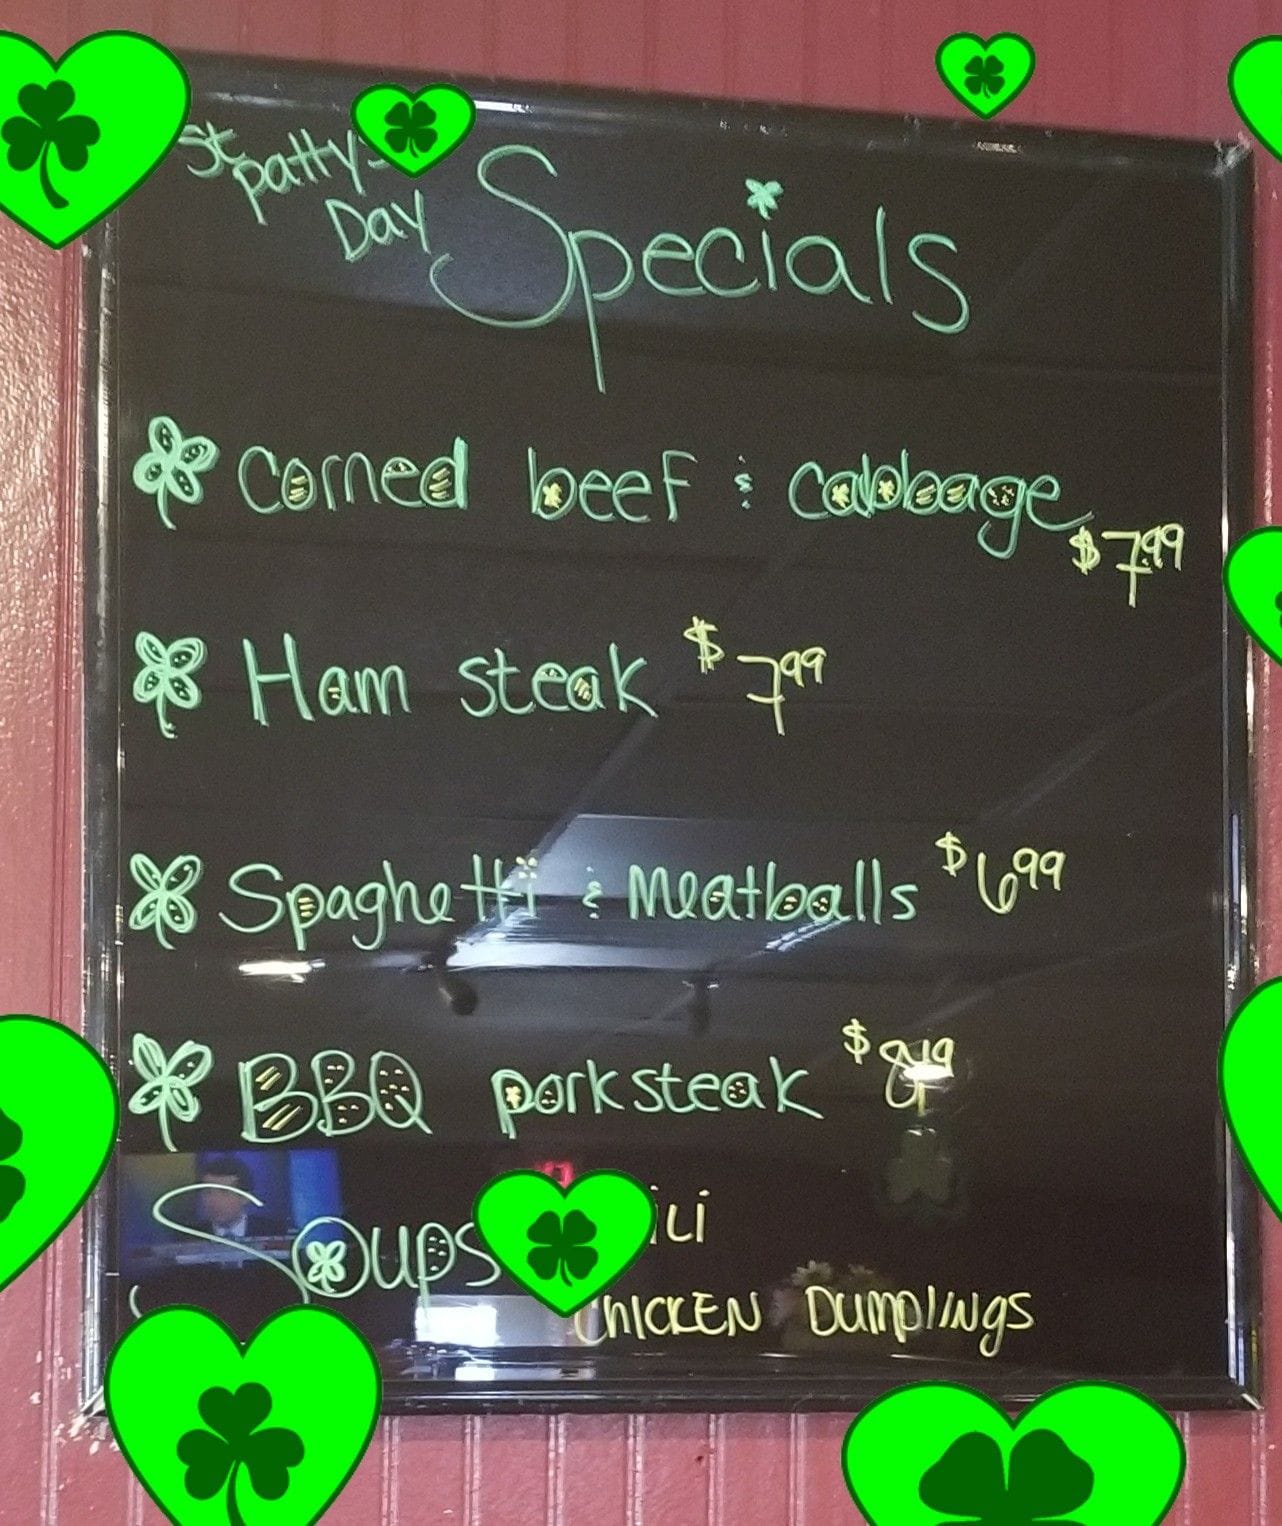 St patty-
Day
Specials
Corned beef & cabbage
$7.99
Ham steak $7 99
Spaghetti & Meatballs $6 99
BBQ pork steak
Soups
Chicken Dumplings